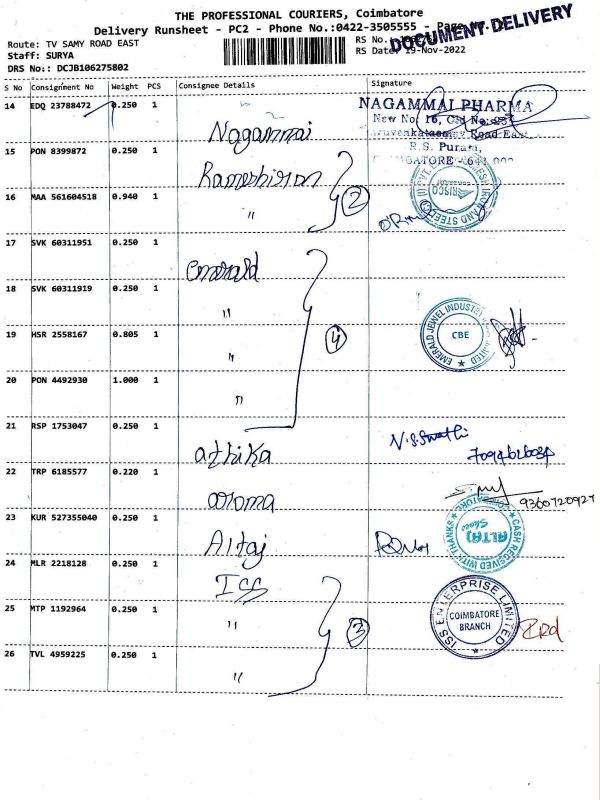 THE PROFESSIONAL COURIERS, Coimbatore
Delivery Runsheet - PC2 - Phone No.:0422-3505555 - Page No.
DOCUMENT DELIVERY
Route: TV SAMY ROAD EAST
RS No.
Staff: SURYA
RS Date: 19-Nov-2022
DRS No.: DCJB106275802
S No Consignment No Weight PCS Consignee Details Signature
14 EDQ 23788472 0.250 1
Nagammai
NAGAMMAI PHARMA
New No: 16, Old No:
Road East
R.S. Puram,
15 PON 8399872 0.250 1
Rameshiron
2
16 MAA 561604518 0.940 1
"
17 SVK 60311951 0.250 1
Emerald
18 SVK 60311919 0.250 1
"
EMERALD JEWEL INDUSTRY LIMITED
CBE
19 HSR 2558167 0.805 1
"
4
20 PON 4492930 1.000 1
"
21 RSP 1753047 0.250 1
athika
N.S.Swathi
22 TRP 6185577 0.220 1
aroma
9360720927
23 KUR 527355040 0.250 1
Altaj
CASH RECEIVED WITH THANKS COIMBATORE
ALTAJ
Shoes
24 MLR 2218128 0.250 1
ISS
25 MTP 1192964 0.250 1
"
3
ISS ENTERPRISE LIMITED
COIMBATORE
BRANCH
26 TVL 4959225 0.250 1
"